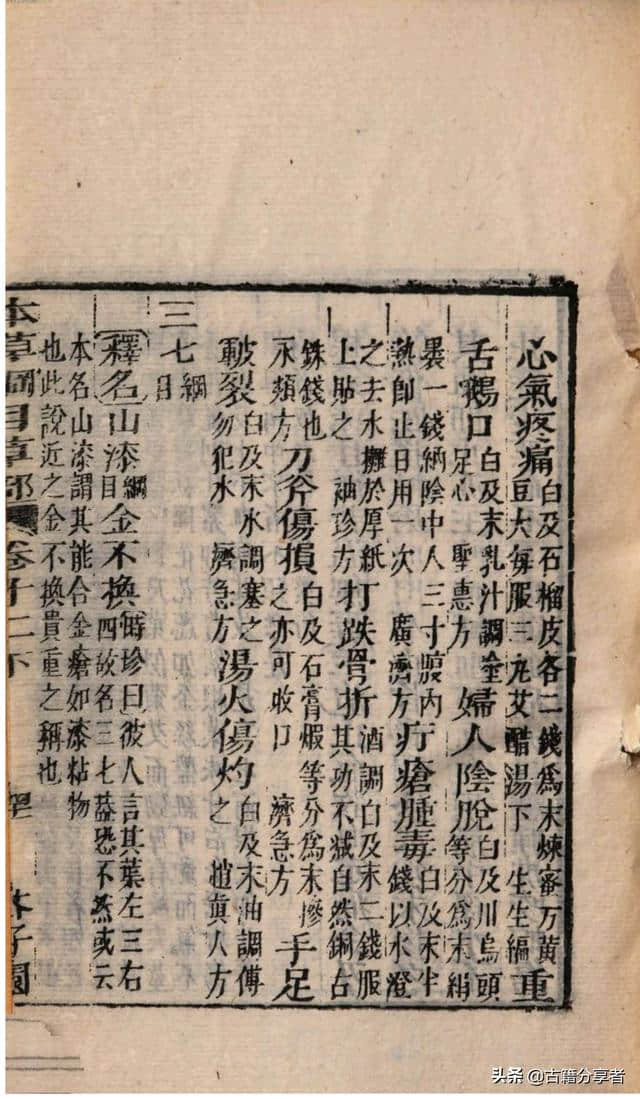 心氣疼痛白及石榴皮各二錢爲末煉蜜丸黃豆大每服三丸艾醋湯下 生生編重
舌鵝口白及末乳汁調塗足心 聖惠方婦人陰脫白及川烏頭等分爲末絹
裹一錢納陰中入三寸腹內熱卽止日用一次 廣濟方疔瘡腫毒白及末半錢以水澄
之去水攤於厚紙上貼之 袖珍方打跌骨折酒調白及末二錢服其功不減自然銅古
銖錢也永類方刀斧傷損白及石膏煅等分爲末摻之亦可收口 濟急方手足
皸裂白及末水調塞之勿犯水 濟急方湯火傷灼白及末油調傅之 趙眞人方
三七綱目
釋名山漆綱目金不換時珍曰彼人言其葉左三右四故名三七蓋恐不然或云
本名山漆謂其能合金瘡如漆粘物也此說近之金不換貴重之稱也
本草綱目草部 卷十二下 芥子園
头条 @古籍分享者